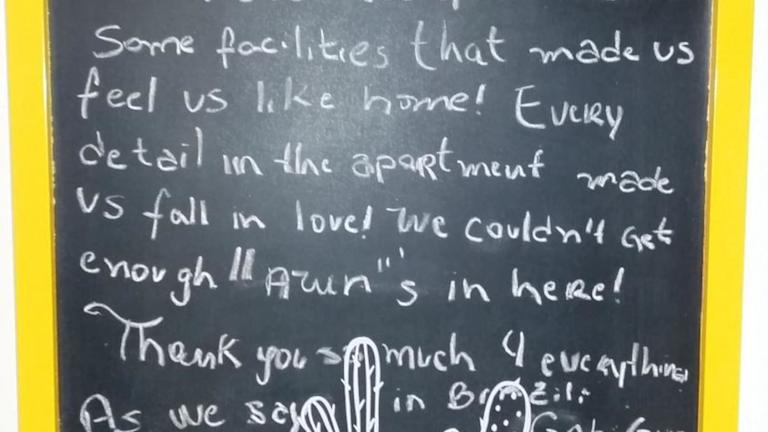 Some facilities that made us
feel us like home! Every
detail in the apartment made
us fall in love! We couldn't get
enough "Azun"s in here!
Thank you so much 4 everything
As we say in Brazil: